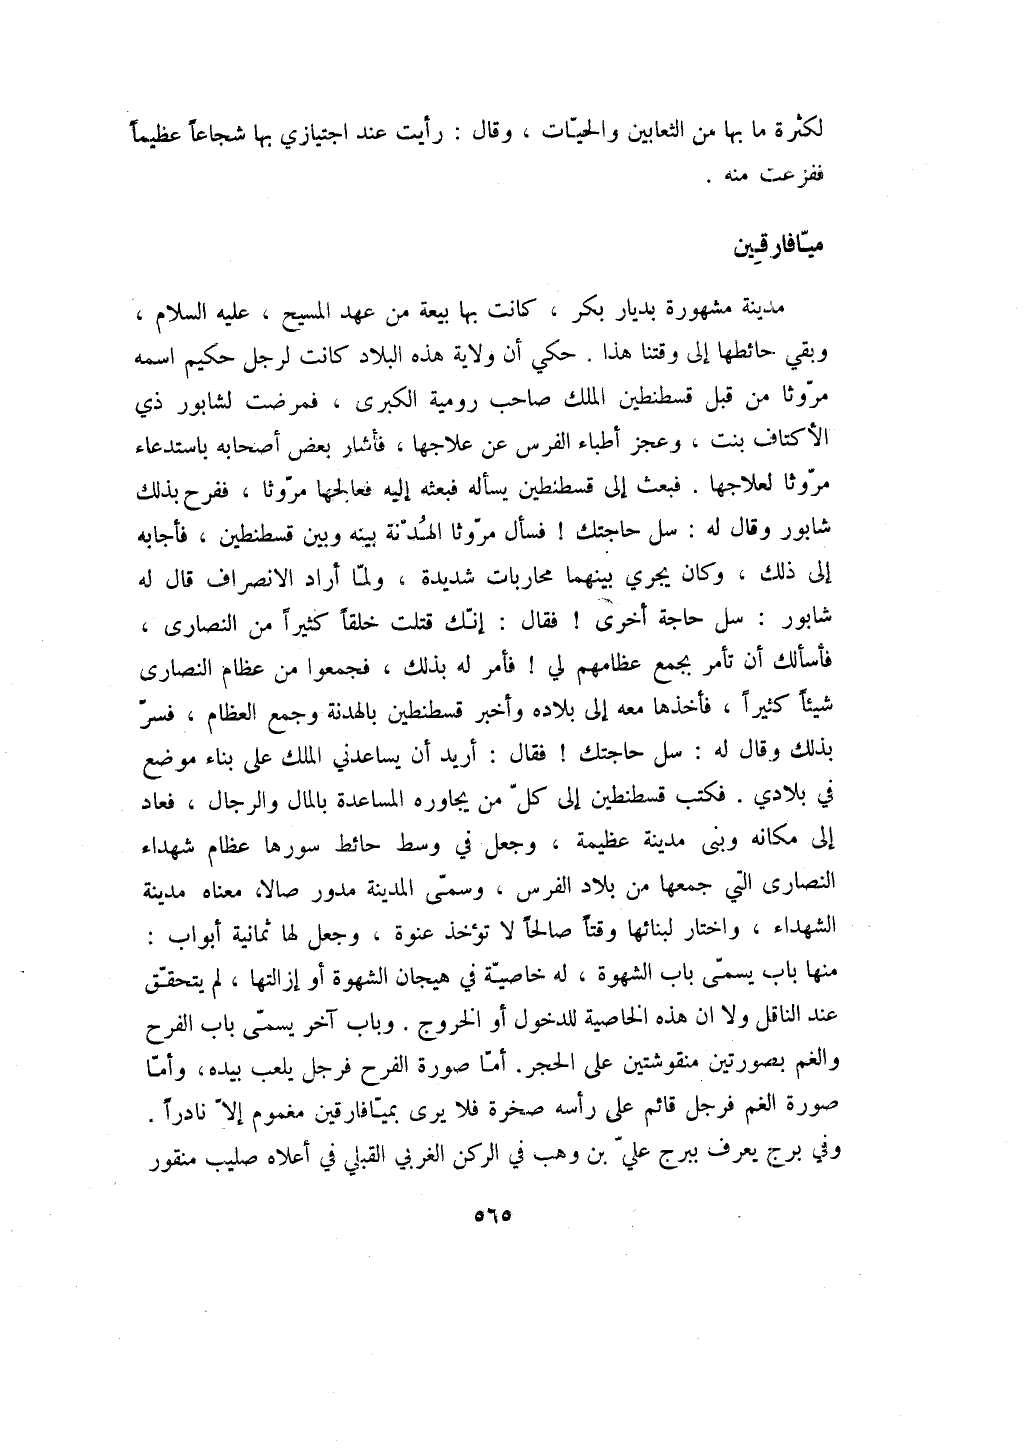 لكثرة ما بها من الثعابين والحيّات ، وقال : رأيت عند اجتيازي بها شجاعاً عظيماً
ففزعت منه .
ميّافارقين
مدينة مشهورة بديار بكر ، كانت بها بيعة من عهد المسيح ، عليه السلام ،
وبقي حائطها إلى وقتنا هذا . حكي أن ولاية هذه البلاد كانت لرجل حكيم اسمه
مرّوثا من قبل قسطنطين الملك صاحب رومية الكبرى ، فمرضت لشابور ذي
الأكتاف بنت ، وعجز أطباء الفرس عن علاجها ، فأشار بعض أصحابه باستدعاء
مرّوثا لعلاجها . فبعث إلى قسطنطين يسأله فبعثه إليه فعالجها مرّوثا ، ففرح بذلك
شابور وقال له : سل حاجتك ! فسأل مرّوثا الهُدْنة بينه وبين قسطنطين ، فأجابه
إلى ذلك ، وكان يجري بينهما محاربات شديدة ، ولمّا أراد الانصراف قال له
شابور : سل حاجة أخرى ! فقال : إنّك قتلت خلقاً كثيراً من النصارى ،
فأسألك أن تأمر بجمع عظامهم لي ! فأمر له بذلك ، فجمعوا من عظام النصارى
شيئاً كثيراً ، فأخذها معه إلى بلاده وأخبر قسطنطين بالهدنة وجمع العظام ، فسرّ
بذلك وقال له : سل حاجتك ! فقال : أريد أن يساعدني الملك على بناء موضع
في بلادي . فكتب قسطنطين إلى كلّ من يجاوره المساعدة بالمال والرجال ، فعاد
إلى مكانه وبنى مدينة عظيمة ، وجعل في وسط حائط سورها عظام شهداء
النصارى التي جمعها من بلاد الفرس ، وسمّى المدينة مدور صالا، معناه مدينة
الشهداء ، واختار لبنائها وقتاً صالحاً لا تؤخذ عنوة ، وجعل لها ثمانية أبواب :
منها باب يسمّى باب الشهوة ، له خاصيّة في هيجان الشهوة أو إزالتها ، لم يتحقّق
عند الناقل ولا ان هذه الخاصية للدخول أو الخروج . وباب آخر يسمّى باب الفرح
والغم بصورتين منقوشتين على الحجر. أمّا صورة الفرح فرجل يلعب بيده، وأمّا
صورة الغم فرجل قائم على رأسه صخرة فلا يرى بميّافارقين مغموم إلاّ نادراً .
وفي برج يعرف ببرج عليّ بن وهب في الركن الغربي القبلي في أعلاه صليب منقور
٥٦٥